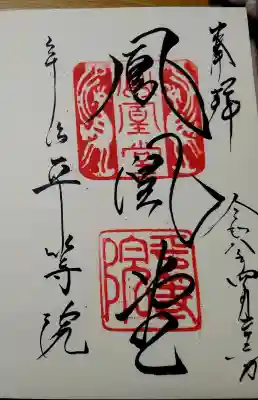 奉拝
令和八年四月吉日
鳳凰堂
宇治平等院
鳳凰堂
平等院